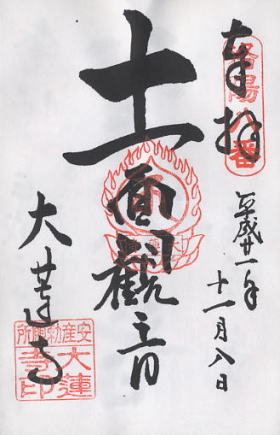 奉拝
洛陽八番
平成廿一年
十一月八日
十一面觀音
大蓮寺
大蓮寺印